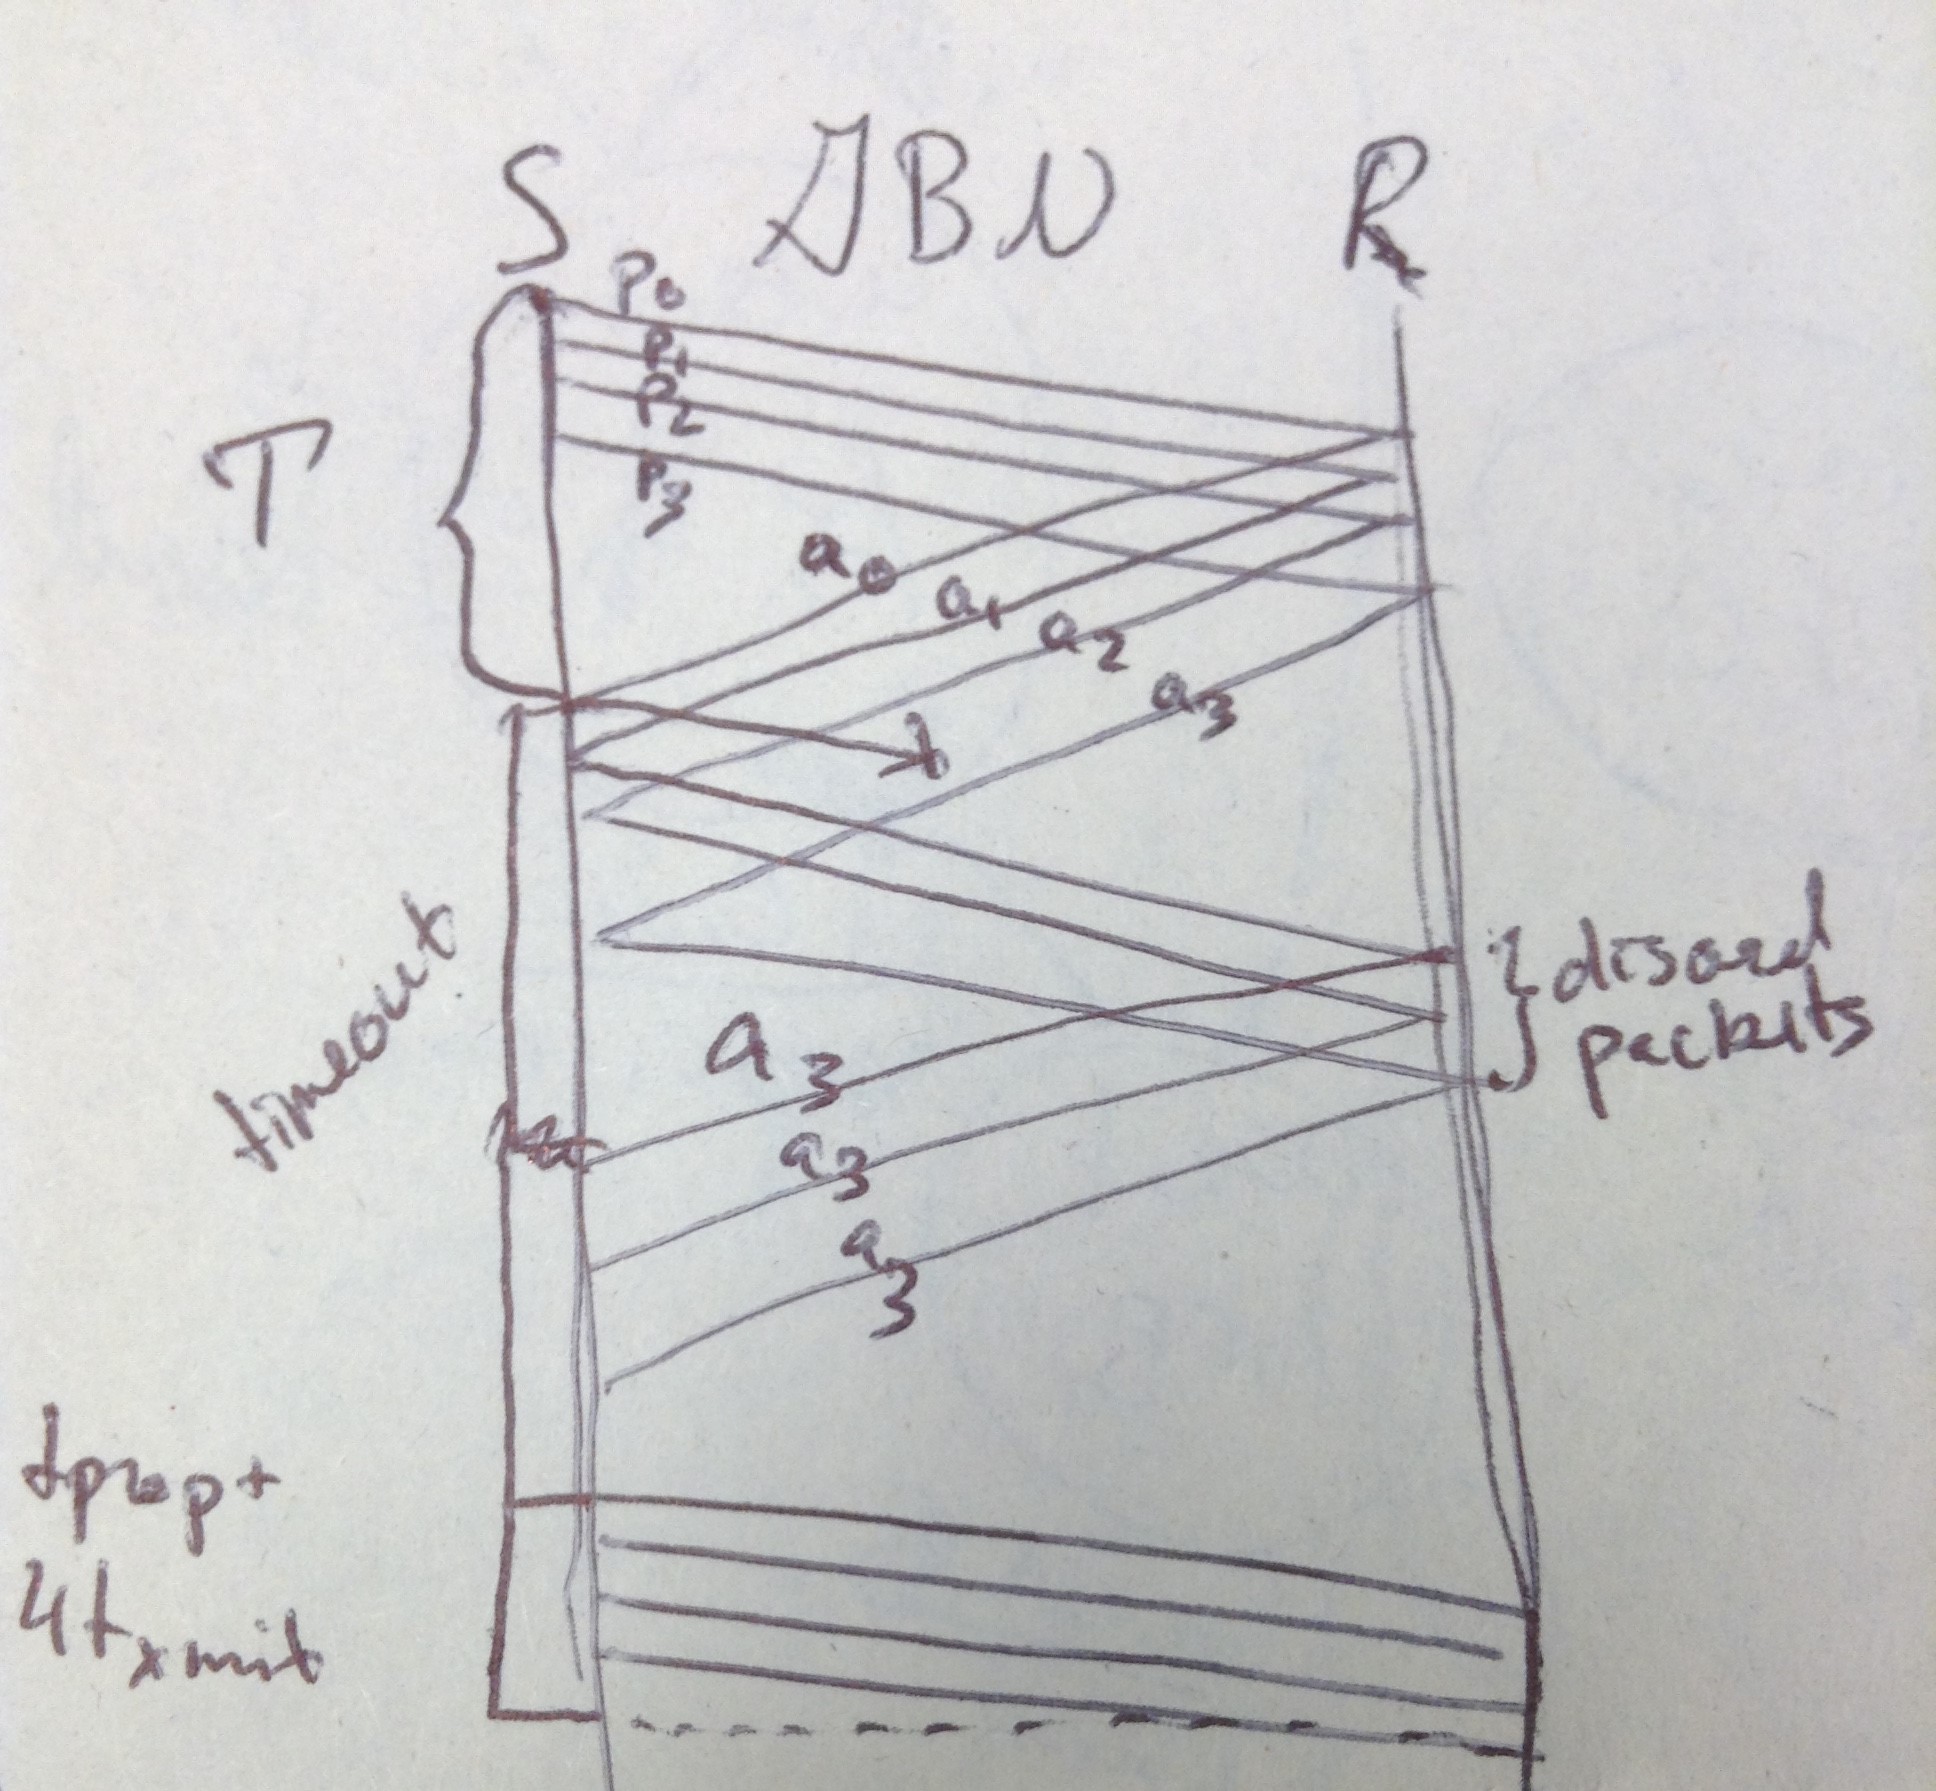 S GBN R
P0
P1
P2
P3
T
a0
a1
a2
a3
timeout
discard
packets
a3
a3
a3
tprop+
4txmit